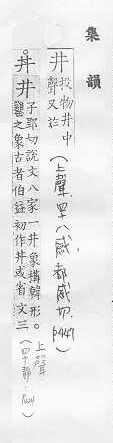 集韻
丼 投物井中聲又姓(上聲.四十八感.都感切.p447)
丼井 子郢切說文八家一井象構韓形。
甕之象古者伯益初作井或省文三
(上聲四十靜. p424)